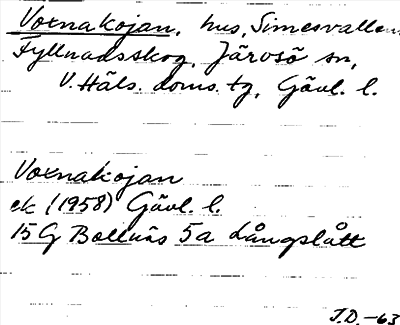 Voxnakojan, hus, Simesvallen
Fyllnadsskog, Järvsö sn,
V. Häls. doms. tg, Gävl. l.
Voxnakojan
ek (1958) Gävl. l.
15 G Bollnäs 5a Långslått
J.D. -63